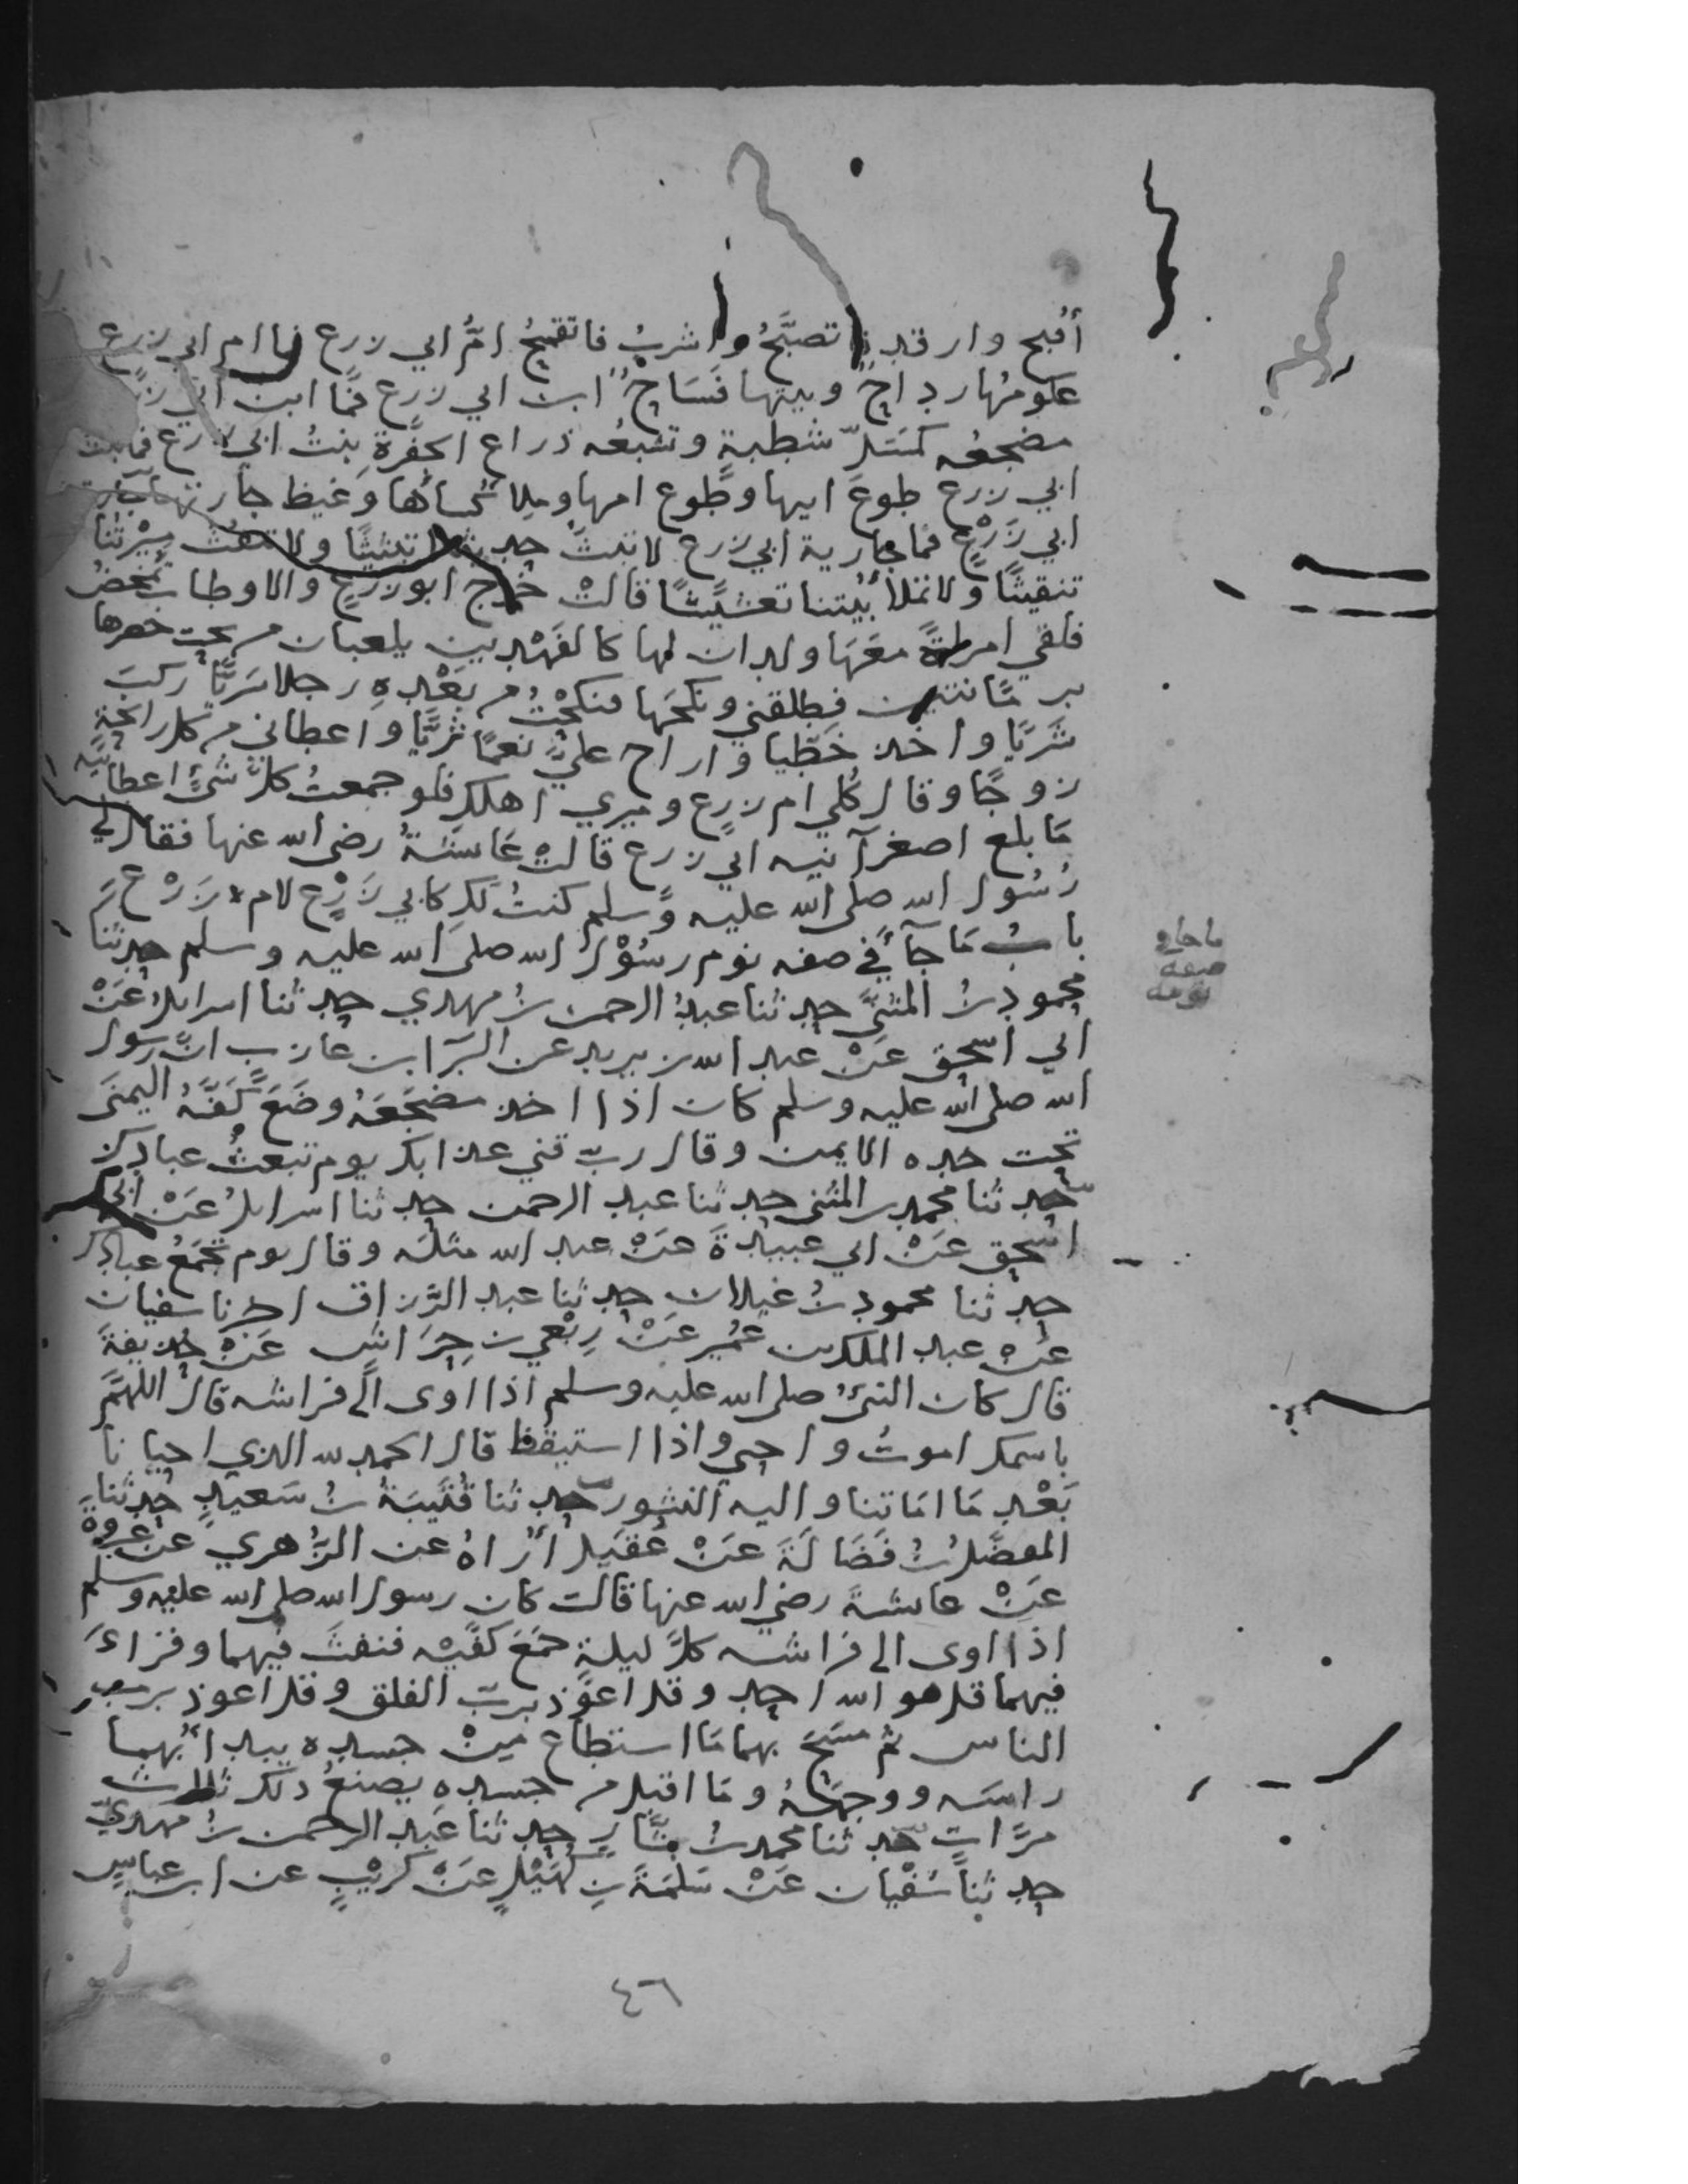 أقبح وارقد فاتصبَّحُ واشربُ فاتقمحُ امُّ ابي زرع فما ام ابي زرع
عكومُها رداحٌ وبيتها فَسَاحٌ ابن ابي زرع فمَا ابن ابي زرع
مضجعُه كمَسَلِّ شطبةٍ وتشبعُه ذراع الجَفْرةِ بنتُ ابي زرع فمابنت
ابي زرع طوعُ ابيها وطوع امها وملأ كساها وغيظ جارتها جارية
ابي زَرْعٍ فما جارية ابي زرع لا تبثُ حديثنا تبثيثًا ولا تنقثُ مِيْرتنا
تنقيثًا ولا تملأ بَيتنا تعشيشًا قالتْ خرج ابو زرعٍ والاوطاب تمخضُ
فلقي امرأةً معَهَا ولدان لها كالفَهْدين يلعبان من تحت خصرها
برمَّانتين فطلقني ونكحَها فنكحْتُ من بَعْدِهِ رجلا سَريًّا ركبَ
شَريًا واخذ خَطِّيا واراح عليَّ نعمًا ثريًّا واعطاني من كل رائحةٍ
زوجًا وقال كُلي ام زرع وميري اهلكِ فلو جمعتُ كلَّ شئٍ اعطانيه
مَا بلع اصغر آنيه ابي زرع قالتْ عَايشةُ رضي الله عنها فقال لي
رُسُول الله صلى الله عليه وسلم كنتُ لكِ كابي زَرْعٍ لام زَرْعٍ
بابُ مَا جَآ في صفه نوم رسُوْل الله صلى الله عليه وسلم حدثنا
محمود بنُ المثنَّى حدثنا عبدُ الرحمن بنُ مهدي حدثنا اسرايلُ عَنْ
ابي اسحق عَنْ عبد الله بن يزيد عن البَرَا بن عازب انَّ رسول
الله صلى الله عليه وسلم كان اذا اخذ مضجَعَهُ وضَعَ كَفَّهُ اليمنَى
تحت خده الايمن وقال ربّ قني عذابك يوم تبعثُ عبادك
حدثنا محمد بن المثنى حدثنا عبد الرحمن حدثنا اسرايلُ عَنْ ابي
اسحق عَنْ ابي عبيدةَ عَنْ عبد الله مثلَه وقال يوم تجمَعُ عبادك
حدثنا محمود بنُ غيلان حدثنا عبد الرَّزاق انا سفيان
عَنْ عبد الملك بن عُمَيرٍ عَنْ رِبْعي بن حِرَاشٍ عَنْ حُذيفةَ
قال كان النبيُّ صلى الله عليه وسلم اذا اوى الَى فراشه قال اللهمَّ
باسمك اموتُ واحيى واذا استيقظ قال الحمد لله الذي احيانا
بَعْد مَا امَاتنا واليه النشور حدثنا قُتَيبَةُ بنُ سَعيدٍ حدثنا
المفضَّلُ بنُ فَضَالَةَ عَنْ عُقَيلٍ أُرَاهُ عن الزُّهري عن عروة
عَنْ عايشةَ رضي الله عنها قالت كان رسول الله صلى الله عليه وسلم
اذا اوى الى فراشه كلَّ ليلةٍ جَمَعَ كفَّيْه فنفثَ فيهما وقراءَ
فيهما قل هو الله احد وقل اعوَذ بربّ الفلق وقل اعوذ برب
الناس ثم مسَحَ بهما مَا استطاع مِنْ جسده يبدأ بهما
راسَه ووجهَهُ ومَا اقبل من جسده يصنعُ ذلك ثلاث
مرَّاتٍ حدثنا محمد بنُ بشَّارٍ حدثنا عَبد الرحمن بنُ مهدي
حدثنا سُفْيان عَنْ سَلمَةَ بنِ كُهَيْلٍ عَنْ كُرَيْبٍ عن ابن عباسٍ
ما جا في
صفة
نومه
٤٦